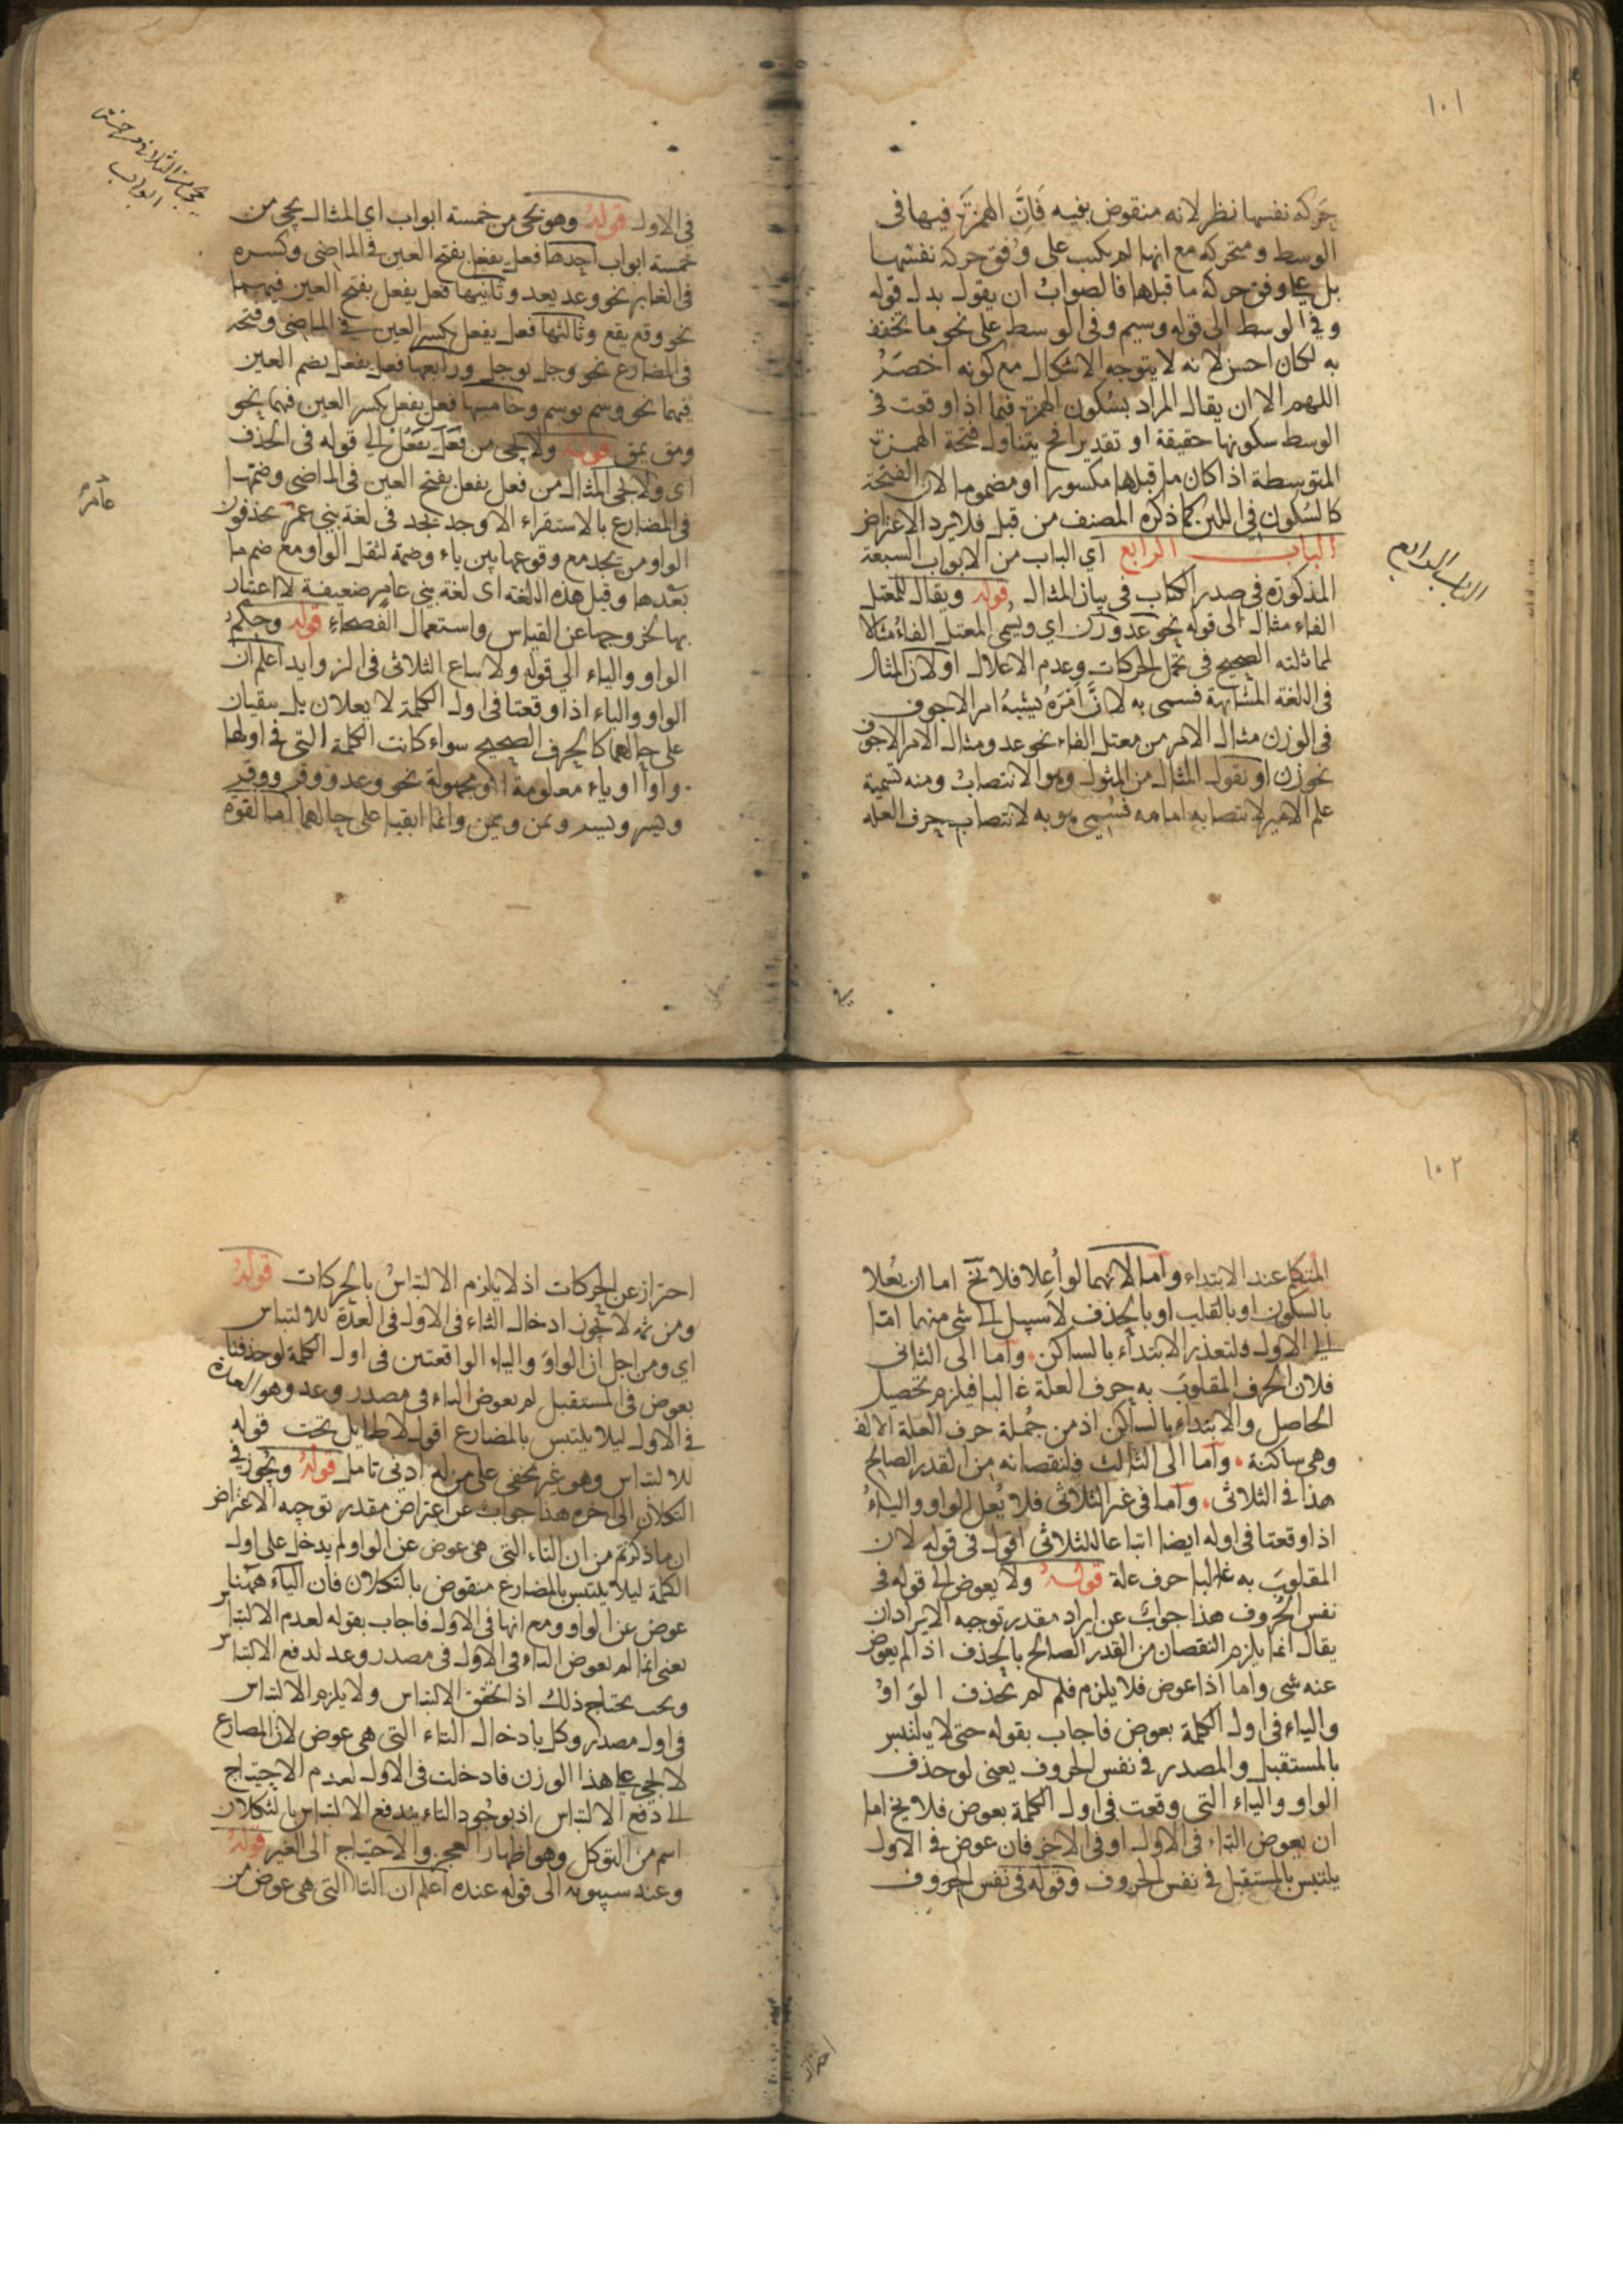 ١٠١
حركة نفسها نظر لانه منقوض بفيه فَاِنَّ الهمزَة فيها فى
الوسط ومتحركه مع انها لم يكتب على وفق حركة نفسها
بل على وفق حركة ما قبلها فالصوابُ ان يقول بدل قوله
وفى الوسط الى قوله وسيم وفى الوسط على نحو ما تخفف
به لكان احسن لانه لا يتوجه الاشكال مع كونه اخصَرُ
اللهم الا ان يقال المراد بسكون الهمزة فيما اذا وقعت فى
الوسط سكونها حقيقة او تقديرا فح يتناول فتحة الهمزة
المتوسطة اذا كان ما قبلها مكسورا او مضموما لان الفتحة
كالسُكون فى اللين كما ذكره المصنف من قبل فلا يرد الاعتراض
الباب الرابع اي الباب من الابواب السبعة
الباب الرابع
المذكورة فى صدر الكتاب فى بيان المثال قوله ويقال للمعتل
الفاء مثال الى قوله نحو عد وزن اي ويسمى المعتل الفاء مثالا
لمماثلته الصحيح فى تحمل الحركات وعدم الاعلال او لان المثال
فى اللغة المشابهة فسمى به لانَّ اَمْرَهُ يُشْبِهُ امر الاجوف
فى الوزن مثال الامر من معتل الفاء نحو عد ومثال الامر الاجوف
نحو زن او نقول المثال من المثول وهو الانتصابُ ومنه تسمية
علم الامير لانتصابه امامه فسُمى هو به لانتصاب حرف العله
فى الاول قوله وهو يجئ من خمسة ابواب اي المثال يجئ من
يجئ من الثلاثى من خمسة
ابواب
خمسة ابواب احدها فعل يفعل بفتح العين فى الماضى وكسره
فى الغابر نحو وعد يعد وثانيها فعل يفعل بفتح العين فيهما
نحو وقع يقع وثالثها فعل يفعل بكسر العين فى الماضى وفتحه
فى المضارع نحو وجل يوجل ورابعها فعل يفعل بضم العين
فيهما نحو وسم يوسم وخامسها فعل يفعل بكسر العين فيهما نحو
ومق يمق قوله ولا يجئ من فَعَلَ يَفْعُلُ الى قوله فى الحذف
اى ولا يجئ المثال من فعل يفعل بفتح العين فى الماضى وضمها
فى المضارع بالاستقراء الا وجد يجد فى لغة بني عمر يحذفون
عامر
الواو من يجد مع وقوعها بين ياء وضمة لثقل الواو مع ضم ما
بعدها وقيل هذه اللغة اى لغة بني عامر ضعيفة لا اعتبار
بها لخروجها عن القياس واستعمال الفُصحاءِ قوله وحكم
الواو والياء الى قوله ولا ساع الثلاثى فى الزوايد اعلم ان
الواو والياء اذا وقعتا فى اول الكلمة لا يعلان بل يبقيان
على حالهما كالحرف الصحيح سواء كانت الكلمة التى فى اولها
واوا او ياء معلومة او مجهولة نحو وعد ووقر ووقر
ويسر ويسر ويمن ويمن وانما ابقيا على حالهما اما لقوة
١٠٢
المتكلم عند الابتداء واما لانهما لو اُعلا فلا يخ اما ان يُعلا
بالسكون او بالقلب او بالحذف لا سبيل الى شى منهما امّا
الى الاول فلتعذر الابتداء بالساكن واما الى الثانى
فلان الحرف المقلوبَ به حرف العلة غالبا فيلزم تحصيل
الحاصل والابتداء بالساكن اذ من جُملة حرف العلة الالف
وهى ساكنة واما الى الثالث فلنقصانه من القدر الصالح
هذا فى الثلاثى واما فى غير الثلاثى فلا يُعل الواو والياءُ
اذا وقعتا فى اوله ايضا اتباعا للثلاثى اقول فى قوله لان
المقلوبَ به غالبا حرف علة قوله ولا يعوض الى قوله فى
نفس الحُروف هذا جوابٌ عن ايراد مقدر توجيه الايراد ان
يقال انما يلزم النقصان من القدر الصالح بالحذف اذا لم يعوض
عنه شى واما اذا عوض فلا يلزم فلم لم يحذف الواوُ
والياء فى اول الكلمة بعوض فاجاب بقوله حتى لا يلتبس
بالمستقبل والمصدر فى نفس الحروف يعنى لو حذف
الواو والياء التى وقعت فى اول الكلمة بعوض فلا يخ اما
ان يعوض التاء فى الاول او فى الاخر فان عوض فى الاول
يلتبس بالمستقبل فى نفس الحروف وقوله فى نفس الحروف
احترازٌ
احتراز عن الحركات اذ لا يلزم الالتباسُ بالحركات قوله
ومن ثمه لا يجوز ادخال التاء فى الاول فى العدة للالتباس
اي ومن اجل ان الواوَ والياء الواقعتين فى اول الكلمة لو حذفتا
بعوض فى المستقبل لم يعوض التاء فى مصدر وعد وهو العدة
فى الاول ليلا يلتبس بالمضارع اقول لا طايل تحت قوله
للالتباس وهو غير مخفى على من له ادنى تامل قوله ويجوز فى
التكلان الى اخره هذا جوابٌ عن اعتراض مقدر توجيه الاعتراض
ان ما ذكرتم من ان التاء التى هى عوض عن الواو لم يدخل على اول
الكلمة ليلا يلتبس بالمضارع منقوض بالتكلان فان التاء ههنا
عوض عن الواو ومع انها فى الاول فاجاب بقوله لعدم الالتباس
يعنى انما لم يعوض التاء فى الاول فى مصدر وعد لدفع الالتباس
ونحن نحتاج ذلك اذا تحقق الالتباس ولا يلزم الالتباس
فى اول مصدر وكل بادخال التاء التى هى عوض لان المضارع
لا يجئ على هذا الوزن فادخلت فى الاول لعدم الاحتياج
الى دفع الالتباس اذ بوجُود التاء يندفع الالتباس بالتكلان
اسم من التوكل وهو اظهار العجز والاحتياج الى الغير قوله
وعند سيبويه الى قوله عنده اعلم ان التا التى هى عوض من